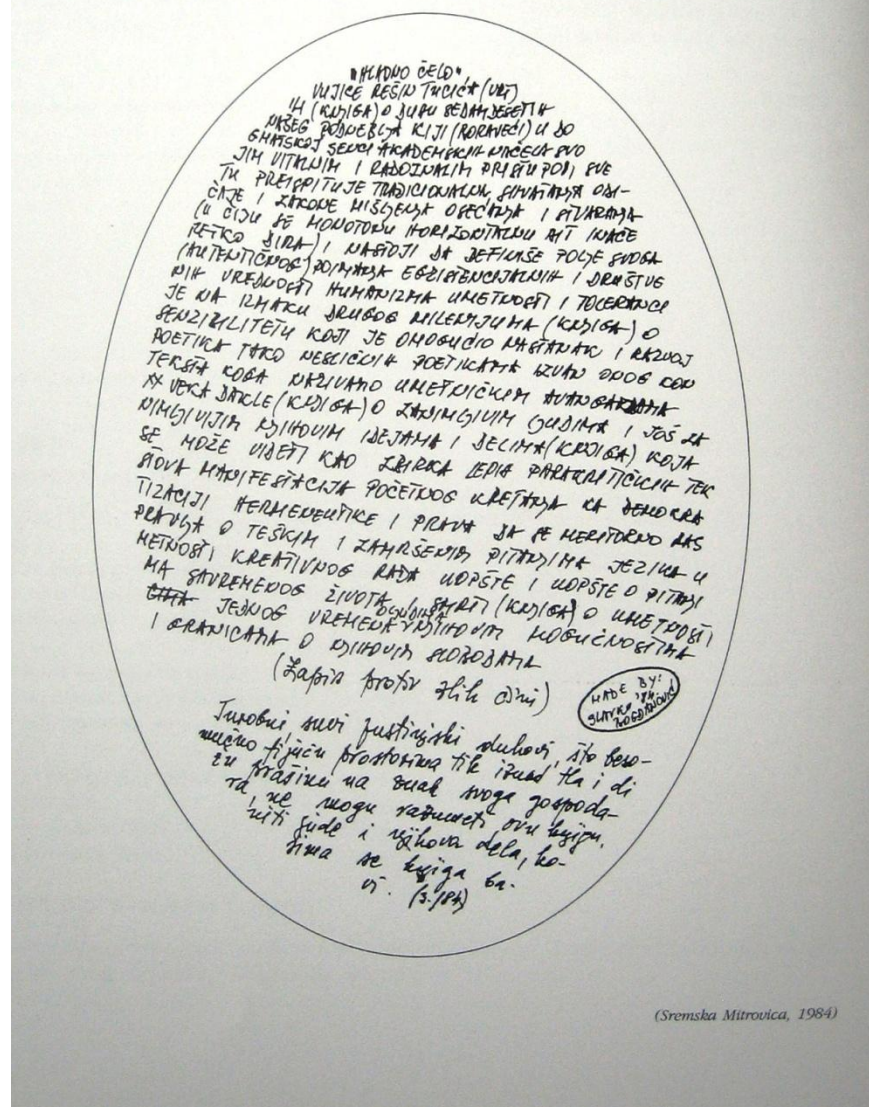 "HLADNO ČELO",
VUJICE REŠIN TUCIĆA (VRT)
IH (KNJIGA) O DUHU SEDAMDESETIH
NAŠEG PODNEBLJA KIJI (BORAVEĆI) U DO
GMATSKOJ SENCI AKADEMSKIH NAČELA SVO
JIM VITALNIM I RADOZNALIM PRISTUPOM, SVE
TU PREISPITUJE TRADICIONALNA SHVATANJA OBI-
ČAJE I ZAKONE MIŠLJENJA OSEĆANJA I STVARANJA
(U ČIJU SE MONOTONU HORIZONTALNU BIT INAČE
RETKO DIRA) I NASTOJI DA DEFINIŠE POLJE SVOGA
(AUTENTIČNOG) POIMANJA EGZISTENCIJALNIH I DRUŠTVE
NIH VREDNOSTI HUMANIZMA UMETNOSTI I TOLERANCI
JE NA IZMAKU DRUGOG MILENIJUMA (KNJIGA) O
SENZIBILITETU KOJI JE OMOGUĆIO NASTANAK I RAZVOJ
POETIKA TAKO NESLIČNIH POETIKAMA IZVAN ONOG KON
TEKSTA KOGA NAZIVAMO UMETNIČKIM AVANGARDAMA
XX VEKA DAKLE (KNJIGA) O ZANIMLJIVIM LJUDIMA I JOŠ ZA
NIMLJIVIJIM NJIHOVIM IDEJAMA I DELIMA (KNJIGA) KOJA
SE MOŽE VIDETI KAO ZBIRKA LEPIH PARAKRITIČKIH TEK
STOVA MANIFESTACIJA POČETNOG KRETANJA KA DEMOKRA
TIZACIJI HERMENEUTIKE I PRAVA DA SE MERITORNO RAS
PRAVLJA O TEŠKIM I ZAMRŠENIM PITANJIMA JEZIKA U
METNOSTI KREATIVNOG RADA UOPŠTE I UOPŠTE O PITANJI
MA SAVREMENOG ŽIVOTA I SMRTI (KNJIGA) O UMETNOSTI
JEDNOG VREMENA O LJUDIMA NJIHOVIM MOGUĆNOSTIMA
I GRANICAMA O NJIHOVIM SLOBODAMA
(Zapis protiv zlih čini)
MADE BY:
SLAVKO '84
BOGDANOVIĆ
Turobni, suvi pustinjski duhovi, što beso-
mučno fijuču prostorima tik iznad tla i di
žu prašinu na znak svoga gospoda-
ra, ne mogu razumeti ovu knjigu,
niti ljude i njihova dela, ko-
jima se knjiga ba-
vi. (3./84)
(Sremska Mitrovica, 1984)